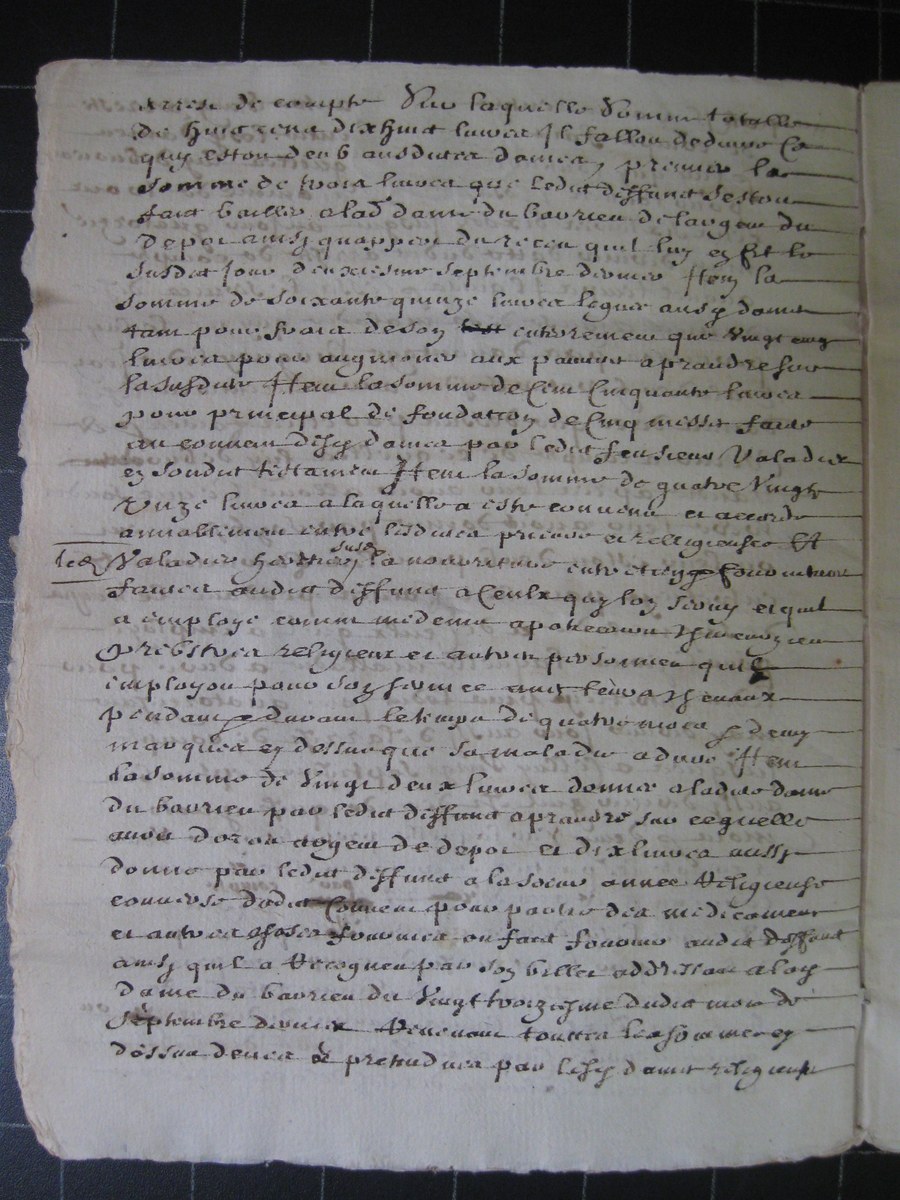 arrest de compte Sur laquelle somme totalle
de huict cens dix huict livres Il fallou deduire ce
quy estou deub ausdictes dames, premier la
somme de trois livres que ledict deffunct sestou
faict bailler a lad dame du baurieu de largen du
depos ainsy quappert du receu quil luy en fit le
susdict jour deuxiesme septembre dernier Item la
somme de soixante quinze livres leguee ausd dames
tant pour frais de son enterrement que vingt cinq
livres pour aux pauvres a prandre sur
la susdicte Item la somme de Cent Cinquante livres
pour principal de fondation de Cinq messes faicte
au couvent desd dames par ledict feu sieur Valadier
en sondict testament Item la somme de quatre vingts
unze livres a laquelle a este convenu et accorde
amiablement entre lesdictes prieure et relligieuses Et
led Valadier heritier susd la nouriture entretien fourniture
faictes audict deffunct a Ceulx quy lon servy et quil
a employe comme medecin apotecaire
prebstres religieux et autres personnes quil
employou pour son service
pendant et durant le temps de quatre mois et demy
marquee en dessus que sa maladie a dure Item
la somme de vingt deux livres donnee a ladicte dame
du baurieu par ledict deffunct a prandre sur cequelle
avou dor ou argent de depos et dix livres aussy
donne par ledict deffunct a la soeur annee Religieuse
converse dudict Couvent pour partie des medicament
et autres choses fournies ou faict fournir audict deffunct
ainsy quil a Recogneu par son billet addressan a lad
dame du baurieu du vingt troiziesme dudict mois de
septembre dernier Revenant touttes les sommes cy
dessus deues et pretendues par lesd dames religieuses